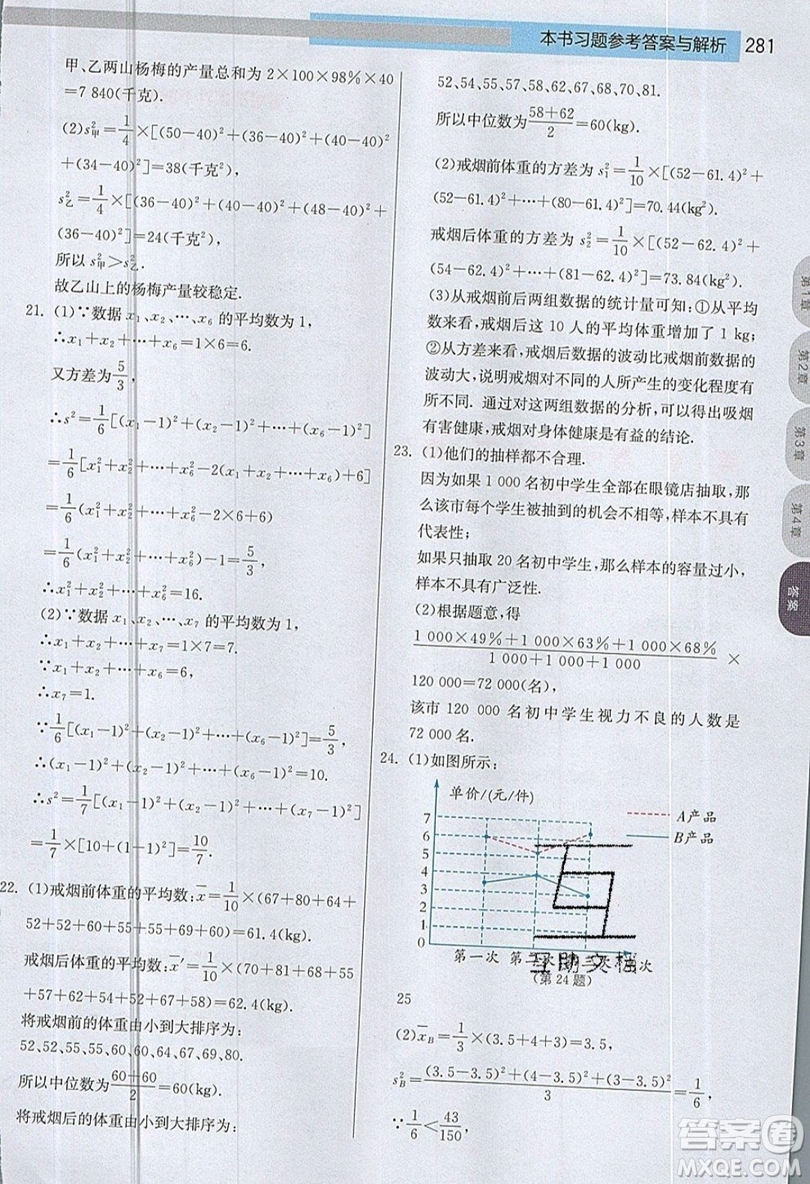 本书习题参考答案与解析 281
甲、乙两山杨梅的产量总和为 2×100×98%×40
=7 840(千克).
(2)s²甲=1/4×[(50-40)²+(36-40)²+(40-40)²
+(34-40)²]=38(千克²),
s²乙=1/4×[(36-40)²+(40-40)²+(48-40)²+
(36-40)²]=24(千克²),
所以 s²甲>s²乙.
故乙山上的杨梅产量较稳定.
21. (1)∵数据 x₁、x₂、…、x₆ 的平均数为 1,
∴x₁+x₂+…+x₆=1×6=6.
又方差为5/3,
∴s²=1/6[(x₁-1)²+(x₂-1)²+…+(x₆-1)²]
=1/6[x₁²+x₂²+…+x₆²-2(x₁+x₂+…+x₆)+6]
=1/6(x₁²+x₂²+…+x₆²-2×6+6)
=1/6(x₁²+x₂²+…+x₆²)-1=5/3,
∴x₁²+x₂²+…+x₆²=16.
(2)∵数据 x₁、x₂、…、x₇ 的平均数为 1,
∴x₁+x₂+…+x₇=1×7=7.
∵x₁+x₂+…+x₆=6,
∴x₇=1.
∵1/6[(x₁-1)²+(x₂-1)²+…+(x₆-1)²]=5/3,
∴(x₁-1)²+(x₂-1)²+…+(x₆-1)²=10.
∴s²=1/7[(x₁-1)²+(x₂-1)²+…+(x₇-1)²]
=1/7[10+(1-1)²]=10/7.
22. (1)戒烟前体重的平均数:x̄=1/10×(67+80+64+
52+52+60+55+54+69+60)=61.4(kg).
戒烟后体重的平均数:x̄′=1/10×(70+81+67+55
+57+64+54+52+68+62)=62.4(kg).
将戒烟前的体重由小到大排序为:
52,52,54,55,60,60,64,67,69,80.
所以中位数为(60+60)/2=60(kg).
将戒烟后的体重由小到大排序为:
52,54,55,57,62,62,67,68,70,81.
所以中位数为(58+62)/2=60(kg).
(2)戒烟前体重的方差为 s₁²=1/10×[(52-61.4)²+
(52-61.4)²+…+(80-61.4)²]=70.44(kg²).
戒烟后体重的方差为 s₂²=1/10×[(52-62.4)²+
(54-62.4)²+…+(81-62.4)²]=73.84(kg²).
(3)从戒烟前后两组数据的统计量可知:①从平均
数来看,戒烟后这 10 人的平均体重增加了 1 kg;
②从方差来看,戒烟后数据的波动比戒烟前数据的
波动大,说明戒烟对不同的人所产生的变化程度
也不同. 通过对这两组数据的分析,可以得出吸烟
有害健康,戒烟对身体健康是有益的结论.
23. (1)他们的抽样都不合理.
因为如果 1 000 名初中学生全部在眼镜店抽取,那
么该市每个学生被抽到的机会不相等,样本不具有
代表性;
如果只抽取 20 名初中学生,那么样本的容量过小,
样本不具有广泛性.
(2)根据题意,得
(1 000×49%+1 000×63%+1 000×68%)/(1 000+1 000+1 000) ×
120 000=72 000(名),
该市 120 000 名初中学生视力不良的人数是
72 000 名.
24. (1)如图所示:
单价/(元/件)
A产品
B产品
7
6
5
4
3
2
1
0
第一次 第二次 第三次
互助文档
(第 24 题)
25
(2)x̄B=1/3×(3.5+4+3)=3.5,
s²B=[(3.5-3.5)²+(4-3.5)²+(3-3.5)²]/3=1/6,
∵1/6<43/150,
第1章
第2章
第3章
第4章
答案
答案圈
MXQE.COM